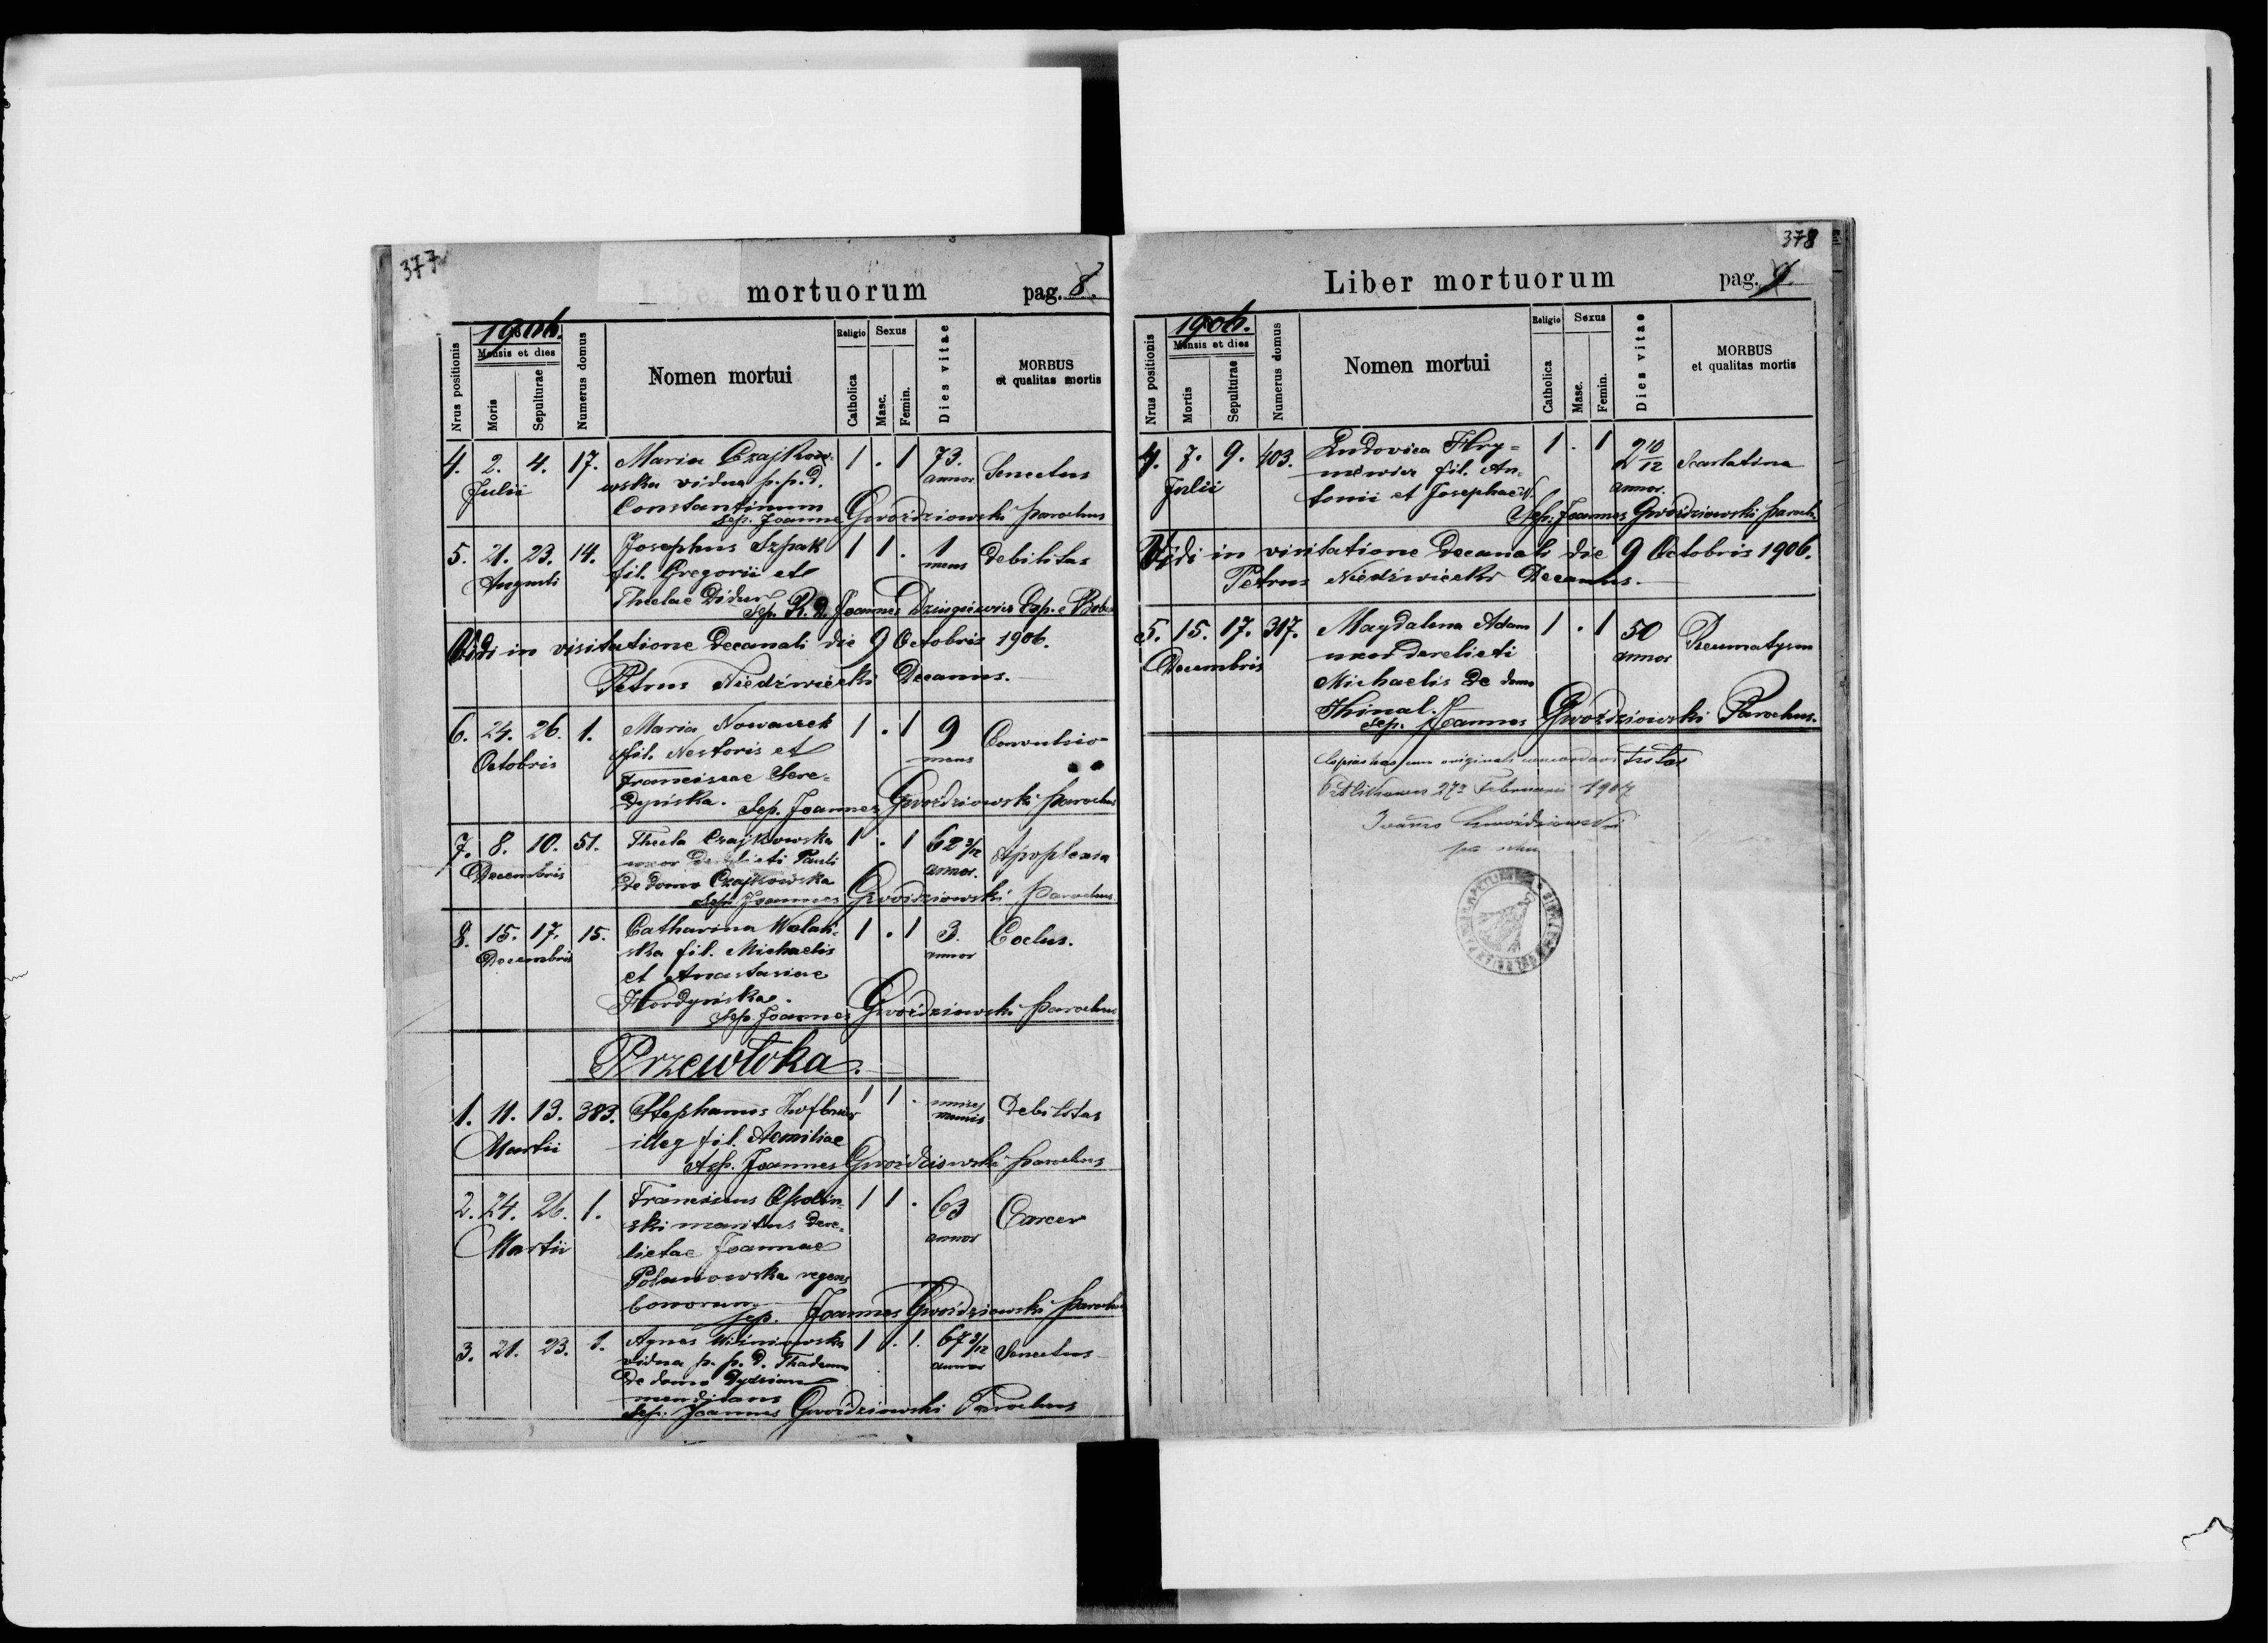 377
Liber mortuorum pag. 8.
1906.
Nrus positionis
Mensis et dies
Moris
Sepulturae
Numerus domus
Nomen mortui
Religio
Catholica
Sexus
Masc.
Femin.
Dies vitae
MORBUS
et qualitas mortis
4. 2. 4. 17. Maria Czajkow- 1 . 1 73. Senectus
Julii wska vidua p. p. d. annor.
Constantinum
Sep. Joannes Gwoździowski parochus
5. 21. 23. 14. Josephus Szpak 1 1 . 1 Debilitas
Augusti fil. Gregorii et mens
Theclae Didur
Sep. R. d. Joannes
Vidi in visitatione Decanali die 9 Octobris 1906.
Petrus Niedźwiecki Decanus.
6. 24. 26. 1. Maria Nowaczek 1 . 1 9 Convulsio
Octobris fil. Nestoris et mens
Franciscae Sere-
dyńska. Sep. Joannes Gwoździowski parochus
7. 8. 10. 51. Thecla Czajkowska 1 . 1 62 3/12 Apoplexia
Decembris uxor derelicti Pauli annor.
de domo Czajkowska
Sep. Joannes Gwoździowski parochus
8. 15. 17. 15. Catharina Wolań- 1 . 1 3. Coclus.
Decembris ska fil. Michaelis annor
et Anastasiae
Hordyńska.
Sep. Joannes Gwoździowski parochus
Przewłoka.
1. 11. 13. 383. Stephanus 1 1 . Debilitas
Martii illeg fil. Aemiliae
Sep. Joannes Gwoździowski parochus
2. 24. 26. 1. Franciscus 1 1 . 63 Carcer
Martii ski maritus dere- annor
lictae Joannae
Polanowska regens
bonorum
Sep. Joannes Gwoździowski parochus
3. 21. 23. 1. Agnes Wiśniowska 1 . 1. 67 3/12 Senectus
vidua p. p. d. Thadeum annor
de domo
mendicans
Sep. Joannes Gwoździowski Parochus
378
Liber mortuorum pag. 9.
1906.
Nrus positionis
Mensis et dies
Mortis
Sepulturae
Numerus domus
Nomen mortui
Religio
Catholica
Sexus
Masc.
Femin.
Dies vitae
MORBUS
et qualitas mortis
4. 7. 9. 403. Ludovica Hry- 1 . 1 2 10/12 Scarlatina
Julii niewicz fil. An- annor.
tonii et Josephae N.
Sep. Joannes Gwoździowski paroch.
Vidi in visitatione Decanali die 9 Octobris 1906.
Petrus Niedźwiecki Decanus.
5. 15. 17. 317. Magdalena Adam 1 . 1 50 Reumatysm
Decembris uxor derelicti annor
Michaelis de domo
Sep. Joannes Gwoździowski Parochus.
Copias has cum originali concordare testor
27a Februarii 1907
Joannes Gwoździowski
parochus